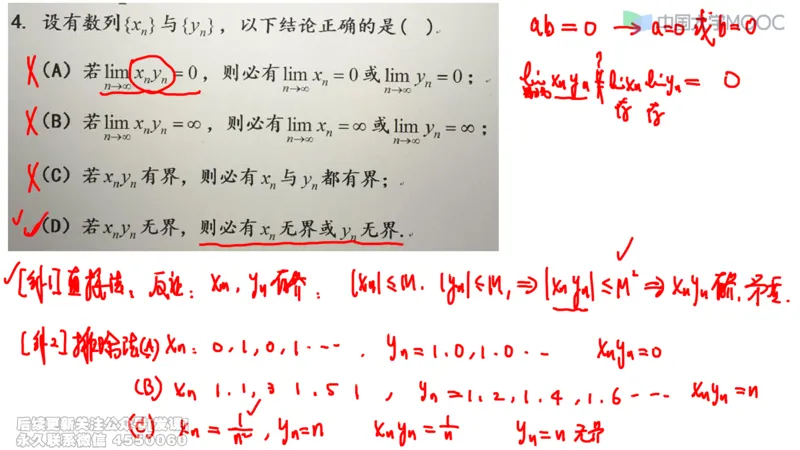 4. 设有数列{xₙ}与{yₙ}，以下结论正确的是( ).
(A) 若lim xₙyₙ=0，则必有lim xₙ=0或lim yₙ=0;
n→∞ n→∞ n→∞
(B) 若lim xₙyₙ=∞，则必有lim xₙ=∞或lim yₙ=∞;
n→∞ n→∞ n→∞
(C) 若xₙyₙ有界，则必有xₙ与yₙ都有界;
(D) 若xₙyₙ无界，则必有xₙ无界或yₙ无界.
中国大学MOOC
ab=0 → a=0 或 b=0
lim xₙyₙ ≠ lim xₙ lim yₙ = 0
?
存 存
[解1]直接法、反证: xₙ, yₙ有界: |xₙ|≤M. |yₙ|≤M, ⇒ |xₙyₙ|≤M² ⇒ xₙyₙ有界, 矛盾.
[解2]排除法(A) xₙ: 0,1,0,1 ···, yₙ=1.0,1.0 ··· xₙyₙ=0
(B) xₙ 1.1,3 1.5 1, yₙ=1.2,1.4,1.6 ··· xₙyₙ=n
(C) xₙ=1/n², yₙ=n xₙyₙ=1/n yₙ=n 无界
后续更新关注公众号
永久联系微信 4550060